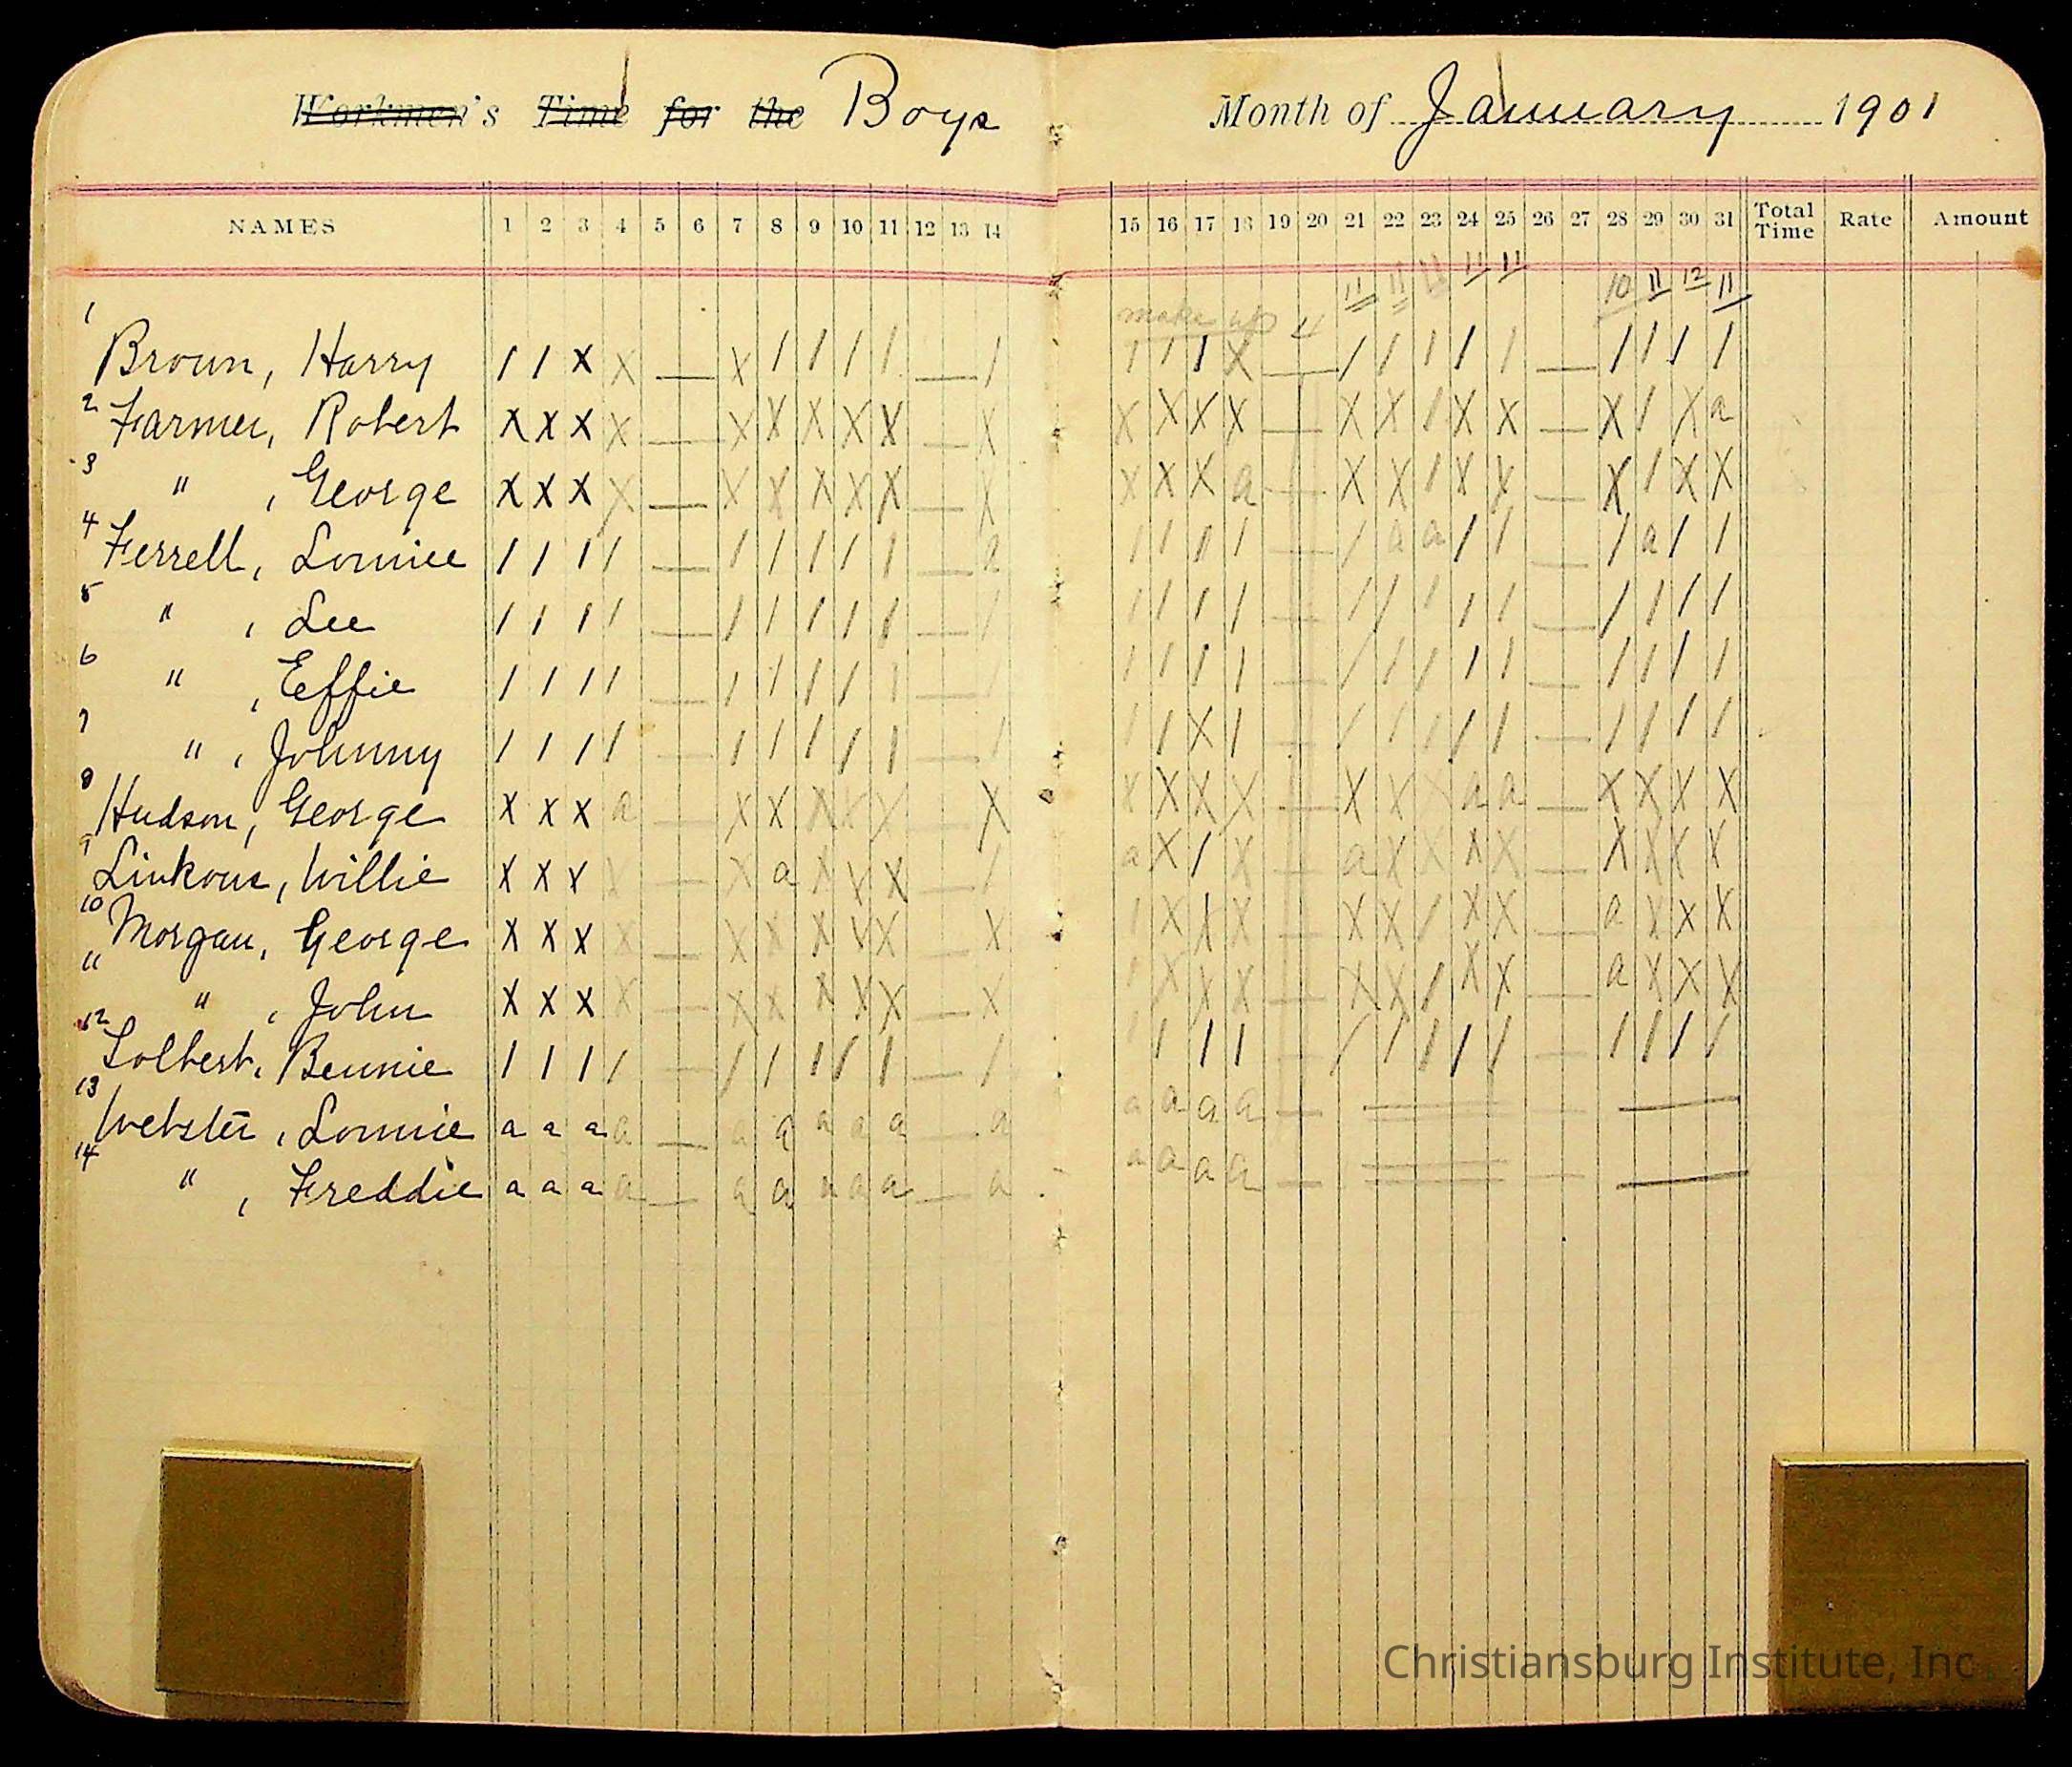 Workmen's Time for the Boys
Month of January 1901
NAMES 1 2 3 4 5 6 7 8 9 10 11 12 13 14 15 16 17 18 19 20 21 22 23 24 25 26 27 28 29 30 31 Total Time Rate Amount
11 11 11 11 11 10 11 12 11
make up 4
1 Brown, Harry / / x x — x / / / / — / / / / x — / / / / / — / / / /
2 Farmer, Robert x x x x — x x x x x — x x x x x — x x / x x — x / x a
3 " , George x x x x — x x x x x — x x x x a — x x / x x — x / x x
4 Ferrell, Lonnie / / / / — / / / / / — a / / / / — / a a / / — / a / /
5 " , Lee / / / / — / / / / / — / / / / / — / / / / / — / / / /
6 " , Eeffie / / / / — / / / / / — / / / / / — / / / / / — / / / /
7 " , Johnny / / / / — / / / / / — / / / x / — / / / / / — / / / /
8 Hudson, George x x x a — x x x x x — x x x x x — x x x a a — x x x x
9 Linkous, Willie x x x x — x a x x x — / a x / x — a x x x x — x x x x
10 Morgan, George x x x x — x x x x x — x / x x x — x x / x x — a x x x
11 " , John x x x x — x x x x x — x / x x x — x x / x x — a x x x
12 Tolbert, Bennie / / / / — / / / / / — / / / / / — / / / / / — / / / /
13 Webster, Lonnie a a a a — a a a a a — a a a a a — — — —
14 " , Freddie a a a a — a a a a a — a a a a a — — — —
Christiansburg Institute, Inc